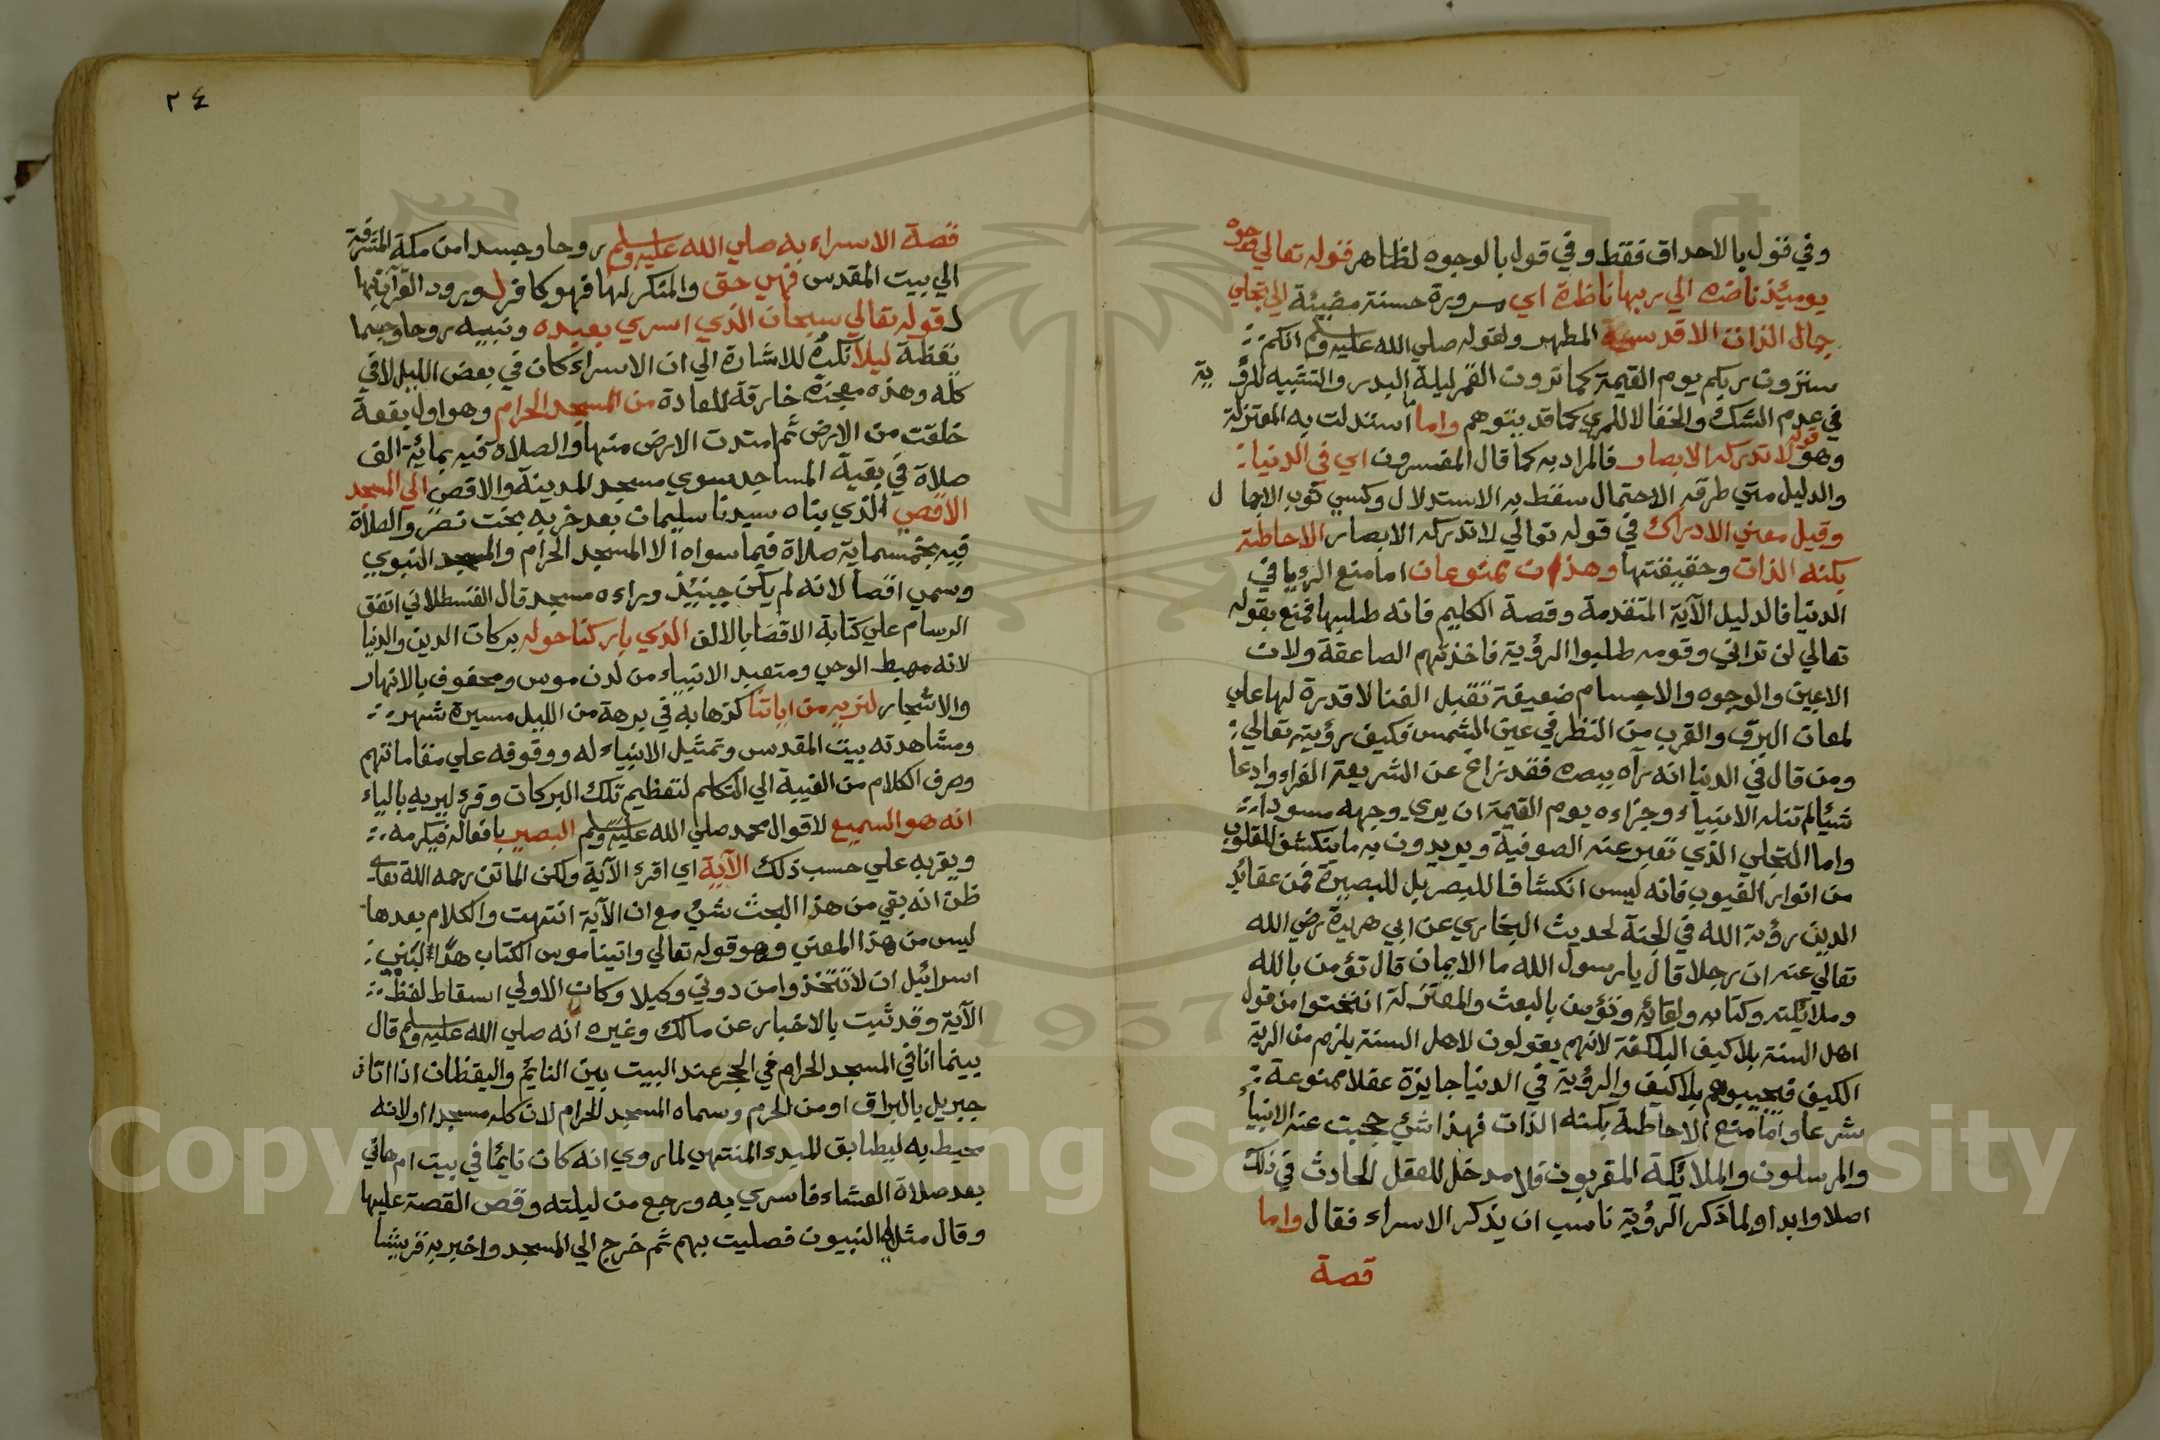 وفي قول بالاحداق فقط وفي قول بالوجوه لظاهر قوله تعالي وجوه
يوميذ ناضره الي ربها ناظرة اي مسرورة حسنة مضيئة الي تجلي
جمال الذات الاقدسية المطهر ولقوله صلي الله عليه وسلم انكم
سترون ربكم يوم القيمة كما ترون القمر ليلة البدر والتشبيه للرؤية
في عدم الشك والخفا لا للمري كما قد يتوهم واما استدلت به المعتزلة
وهو قوله لا تدركه الابصار فالمراد به كما قال المفسرون اي في الدنيا
والدليل متي طرقه الاحتمال سقط به الاستدلال وكسي ثوب الاجمال
وقيل معني الادراك في قوله توالي لا تدركه الابصار الاحاطة
بكنه الذات وحقيقتها وهذان ممنوعان اما منع الرؤيا في
الدنيا فالدليل الآية المتقدمة وقصة الكليم فانه طلبها فمنع بقوله
تعالي لن تراني وقومه طلبوا الرؤية فاخذتهم الصاعقة ولان
الاعين والوجوه والاجسام ضعيفة تقبل الفنا لا قدرة لها علي
لمعات البرق والقرب من النظر في عين الشمس فكيف رؤيته تعالي
ومن قال في الدنيا انه رآه ببصره فقد زاغ عن الشريعة الغراء وادعا
شيئا لم تنله الانبياء وجزاءه يوم القيمة ان يري وجهه مسودا
واما التجلي الذي تعبر عنه الصوفية ويريدون به ما ينكشف للقلوب
من انوار الغيوب فانه ليس انكشافا للبصر بل للبصيرة فمن عقائد
الدين رؤية الله في الجنة لحديث البخاري عن ابي هريرة رضي الله
تعالي عنه ان رجلا قال يا رسول الله ما الايمان قال تؤمن بالله
وملائكته وكتابه ولقائه وتؤمن بالبعث والمعتزلة من قول
اهل السنة بلا كيف البلكفة لانهم يقولون لاهل السنة يلزم من الرية
الكيف فنجيبوهم بلا كيف والرؤية في الدنيا جايزة عقلا ممنوعة
شرعا واما منع الاحاطة بكنه الذات فهذا شيء حجبت عنه الانبياء
والمرسلون والملائكة المقربون ولا مدخل للعقل الحادث في ذلك
اصلا وابدا ولما ذكر الرؤية ناسب ان يذكر الاسراء فقال واما
قصة
٢٤
قصة الاسراء به صلي الله عليه وسلم روحا وجسدا من مكة المشرفة
الي بيت المقدس فهي حق والمنكر لها فهو كافر لورود القرآن بها
لقوله تعالي سبحان الذي اسري بعبده ونبيه روحا وجسما
يقظة ليلا نكرة للاشارة الي ان الاسراء كان في بعض الليل لا في
كله وهذه معجزة خارقة للعادة من المسجد الحرام وهو اول بقعة
خلقت من الارض ثم امتدت الارض منها والصلاة فيه بمائة الف
صلاة في بقية المساجد سوي مسجد المدينة والاقصي الي المسجد
الاقصي الذي بناه سيدنا سليمان بعد خربه بخت نصر والصلاة
فيه بخمسماية صلاة فيما سواه الا المسجد الحرام والمسجد النبوي
وسمي اقصا لانه لم يكن حينيذ وراءه مسجد قال القسطلاني اتفق
الرسام علي كتابة الاقصا بالالف الذي باركنا حوله ببركات الدين والدنيا
لانه مهبط الوحي ومتعبد الانبياء من لدن موسي ومحفوف بالانهار
والاشجار لنريه من اياتنا كذهابه في برهة من الليل مسيرة شهر
ومشاهدته بيت المقدس وتمثيل الانبياء له ووقوفه علي مقاماتهم
وصرف الكلام من الغيبة الي التكلم لتعظيم تلك البركات وقرء ليريه بالياء
انه هو السميع لاقوال محمد صلي الله عليه وسلم البصير بافعاله فيكرمه
ويقربه علي حسب ذلك الآية اي اقرء الآية ولكن الماتن رحمه الله تعالي
ظن انه بقي من هذا البحث شيء مع ان الآية انتهت والكلام بعدها
ليس من هذا المعني وهو قوله تعالي واتينا موسي الكتاب هدا لبني
اسرائيل ان لا تتخذوا من دوني وكيلا وكان الاولي اسقاط لفظ
الآية وقد ثبت بالاخبار عن مالك وغيره انه صلي الله عليه وسلم قال
بينما انا في المسجد الحرام في الحجر عند البيت بين النائم واليقظان اذ اتاني
جبريل بالبراق او من الحرم وسماه المسجد الحرام لان كله مسجد او لانه
محيط به ليطابق المبدء المنتهي لما روي انه كان نايما في بيت ام هاني
بعد صلاة العشاء فاسري به ورجع من ليلته وقص القصة عليها
وقال مثل لي النبيون فصليت بهم ثم خرج الي المسجد واخبر به قريشا
Copyright © King Saud University
1957